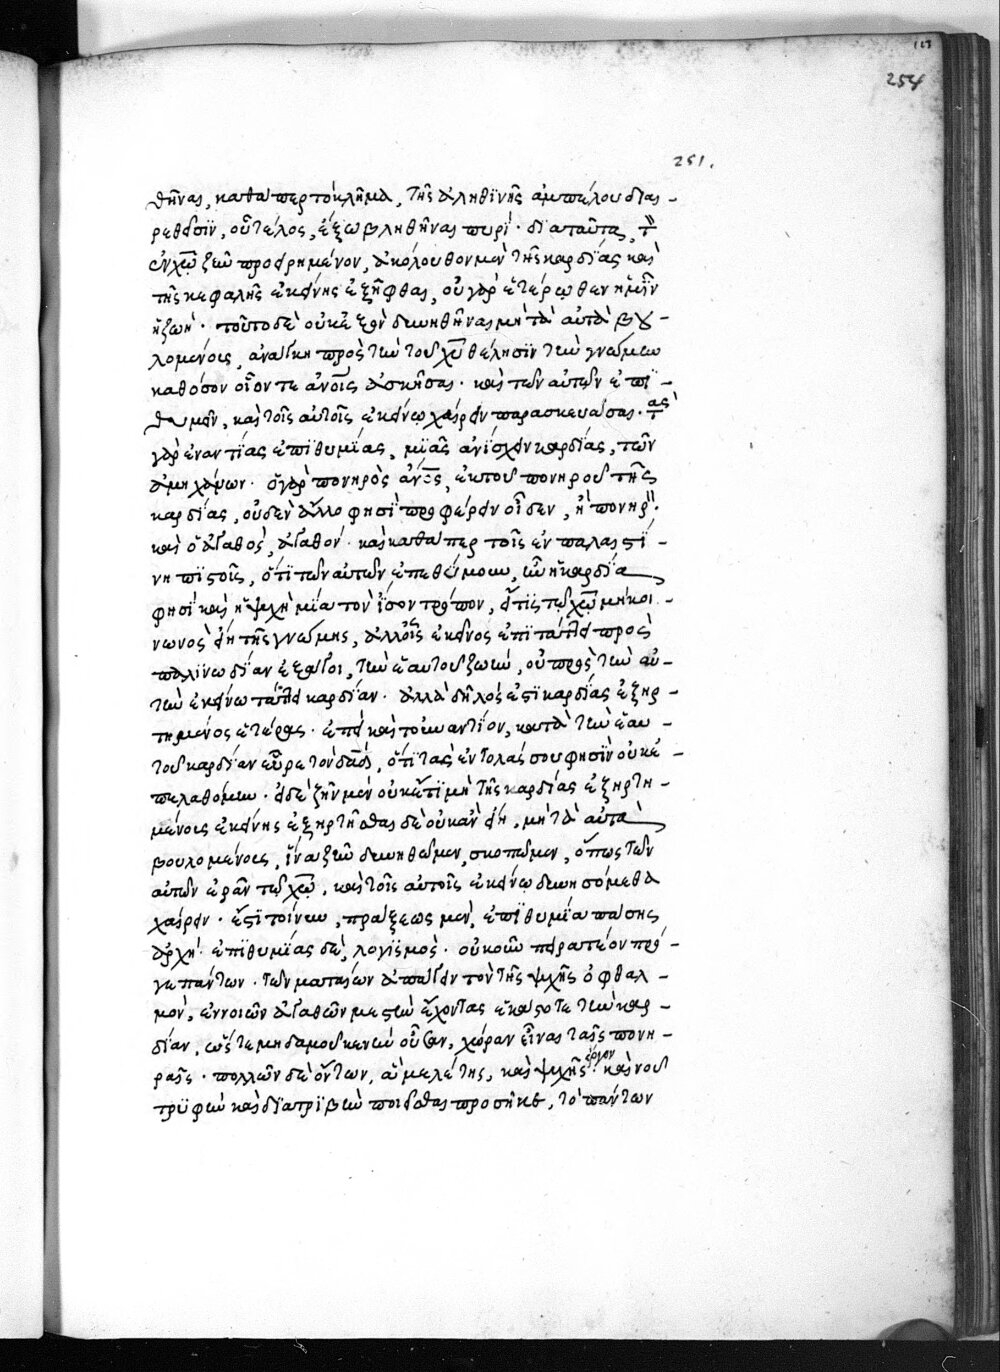 113
254
251.
θῆναι, καθάπερ τὸ κλῆμα, τῆς ἀληθινῆς ἀμπέλου διαι-
ρεθεῖσιν, οὗ τέλος, ἔξω βληθῆναι πυρί· διὰ ταῦτα, τ
ἐν χῶ ζῆν προῃρημένον, ἀκόλουθον μὲν τῆς καρδίας καὶ
τῆς κεφαλῆς ἐκείνης ἐξῆφθαι, οὐ γὰρ ἑτέρωθεν ἡμῖν
ἡ ζωή· τοῦτο δὲ οὐκ ἐξὸν δυνηθῆναι μὴ τὰ αὐτὰ βου-
λομένοις, ἀνάγκη πρὸς τὴν τοῦ χῦ θέλησιν τὴν γνώμην
καθόσον οἷόν τε ἀνοις ἀσκῆσαι· καὶ τῶν αὐτῶν ἐπι-
θυμεῖν, καὶ τοῖς αὐτοῖς ἐκείνῳ χαίρειν παρασκευάσαι· τὰς
γὰρ ἐναντίας ἐπιθυμίας, μιᾶς ἀνίσχειν καρδίας, τῶν
ἀμηχάνων· ὁ γὰρ πονηρὸς ἀνος, ἐκ τοῦ πονηροῦ τῆς
καρδίας, οὐδὲν ἄλλο φησὶ προφέρειν οἶδεν, ἢ πονηρ·
καὶ ὁ ἀγαθὸς, ἀγαθόν· καὶ καθάπερ τοῖς ἐν παλαιστί-
νη πιστοῖς, ὅτι τῶν αὐτῶν ἐπεθύμουν, ἦν ἡ καρδία
φησὶ καὶ ἡ ψυχὴ μία τὸν ἴσον τρόπον, εἴ τις τῷ χῶ μὴ κοι-
νωνὸς εἴη τῆς γνώμης, ἀλλ' οἷς ἐκεῖνος ἐπιτάττει πρὸς
παλινωδίαν ἐξάγοι, τὴν ἑαυτοῦ ζωὴν, οὐ πρὸς τὴν αὐ-
τὴν ἐκείνῳ τάττει καρδίαν· ἀλλὰ δῆλός ἐστι καρδίας ἐξηρ-
τημένος ἑτέρας· ἐπεὶ καὶ τοὐναντίον, κατὰ τὴν ἑαυ-
τοῦ καρδίαν εὗρε τὸν δαδ, ὅτι τὰς ἐντολάς σου φησὶν οὐκ ἐ-
πελαθόμην· εἰ δὲ ζῆν μὲν οὐκ ἔστι μὴ τῆς καρδίας ἐξηρτη-
μένοις ἐκείνης ἐξηρτῆσθαι δὲ οὐκ ἂν εἴη, μὴ τὰ αὐτὰ
βουλομένοις, ἵνα ζῆν δυνηθῶμεν, σκοπῶμεν, ὅπως τῶν
αὐτῶν ἐρᾶν τῷ χῶ, καὶ τοῖς αὐτοῖς ἐκείνῳ δυνησόμεθα
χαίρειν· ἔστι τοίνυν, πράξεως μὲν, ἐπιθυμία πάσης
ἀρχή· ἐπιθυμίας δὲ, λογισμὸς· οὐκοῦν πειρατέον πρό-
γε πάντων· τῶν ματαίων ἀπάγειν τὸν τῆς ψυχῆς ὀφθαλ-
μὸν, ἐννοιῶν ἀγαθῶν μεστὴν ἔχοντας ἑκάστοτε τὴν καρ-
δίαν, ὥστε μηδαμοῦ κενὴν οὖσαν, χώραν εἶναι ταῖς πονη-
ραῖς· πολλῶν δὲ ὄντων, ἃ μελέτης, καὶ ψυχῆς ἔργον καὶ νοῦ
τρυφὴν καὶ διατριβὴν ποιεῖσθαι προσῆκε, τὸ πάντων